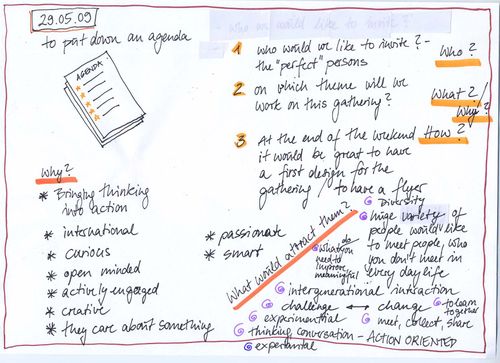 29.05.09
to put down an agenda
AGENDA
- who would we like to invite?
1 who would we like to invite? -
the "perfect" persons
Who?
2 on which theme will we
work on this gathering?
What?/
Why?
3 At the end of the weekend
it would be great to have
a first design for the
gathering / to have a flyer
How?
Why?
* Bringing thinking
into action
* international
* curious
* open minded
* actively engaged
* creative
* they care about something
* passionate
* smart
What would attract them?
diversity
huge variety of
people would like
to meet people, who
you don't meet in
every day life
what do you
need to
improve
meaningful
intergenerational interaction
challenge ↔ change
to learn
together
experimential
meet, collect, share
thinking conversation - ACTION ORIENTED
experiential